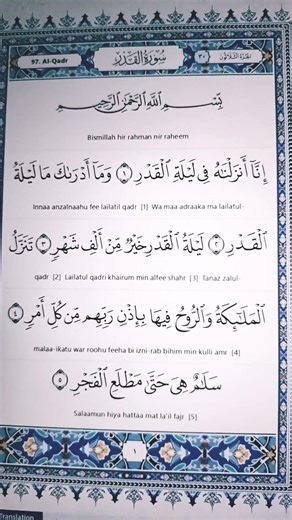 97. Al-Qadr
سُورَةُ الْقَدْرِ
الجزء الثلاثون ٣٠
بِسْمِ اللَّهِ الرَّحْمَٰنِ الرَّحِيمِ
Bismillah hir rahman nir raheem
إِنَّا أَنزَلْنَاهُ فِي لَيْلَةِ الْقَدْرِ ١ وَمَا أَدْرَاكَ مَا لَيْلَةُ
Innaa anzalnaahu fee lailatil qadr [1] Wa maa adraaka ma lailatul-
الْقَدْرِ ٢ لَيْلَةُ الْقَدْرِ خَيْرٌ مِّنْ أَلْفِ شَهْرٍ ٣ تَنَزَّلُ
qadr [2] Lailatul qadri khairum min alfee shahr [3] Tanaz zalul-
الْمَلَائِكَةُ وَالرُّوحُ فِيهَا بِإِذْنِ رَبِّهِم مِّن كُلِّ أَمْرٍ ٤
malaa-ikatu war roohu feeha bi izni-rab bihim min kulli amr [4]
سَلَامٌ هِيَ حَتَّىٰ مَطْلَعِ الْفَجْرِ ٥
Salaamun hiya hattaa mat la'il fajr [5]
١
Translation